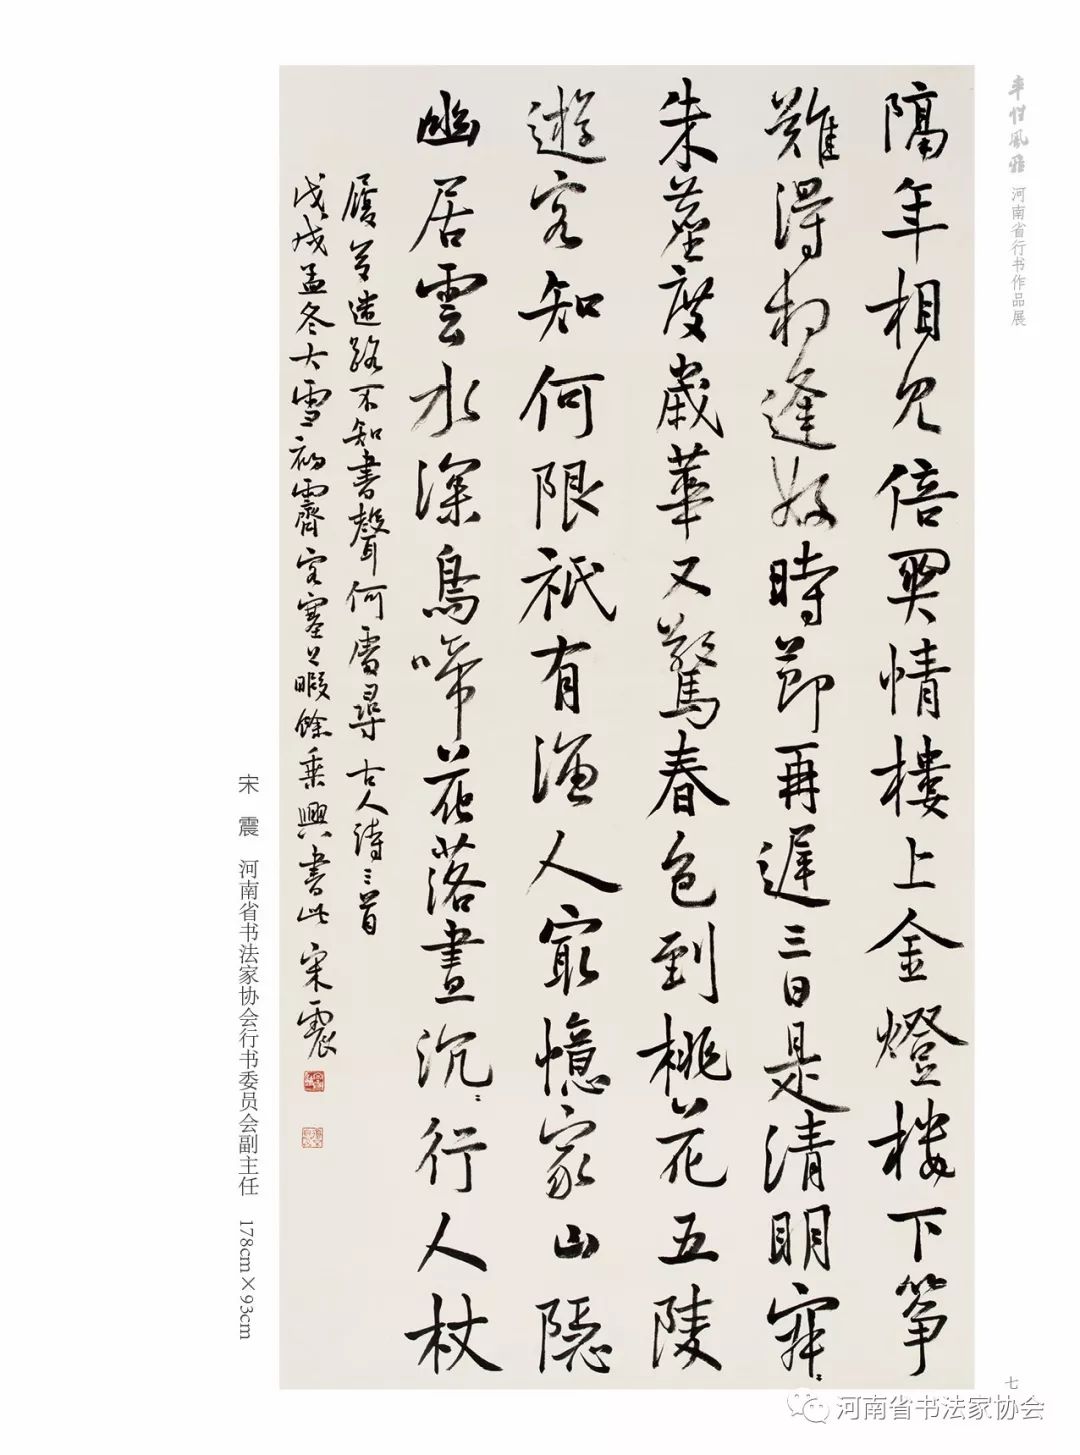 率性風雅 河南省行书作品展
隔年相見倍情樓上金燈樓下箏
難得相逢好時節再遲三日是清明寂〻
朱塵度歲華又驚春色到桃花五陵
遊客知何限祇有漁人最憶家山隱
幽居雲水深鳥啼花落晝沉〻行人杖
履苔迷路不知書聲何處尋 古人詩三首
戊戌孟冬大雪初霽客暇餘乘興書此宋震
宋 震 河南省书法家协会行书委员会副主任 178cm×93cm
七
河南省书法家协会